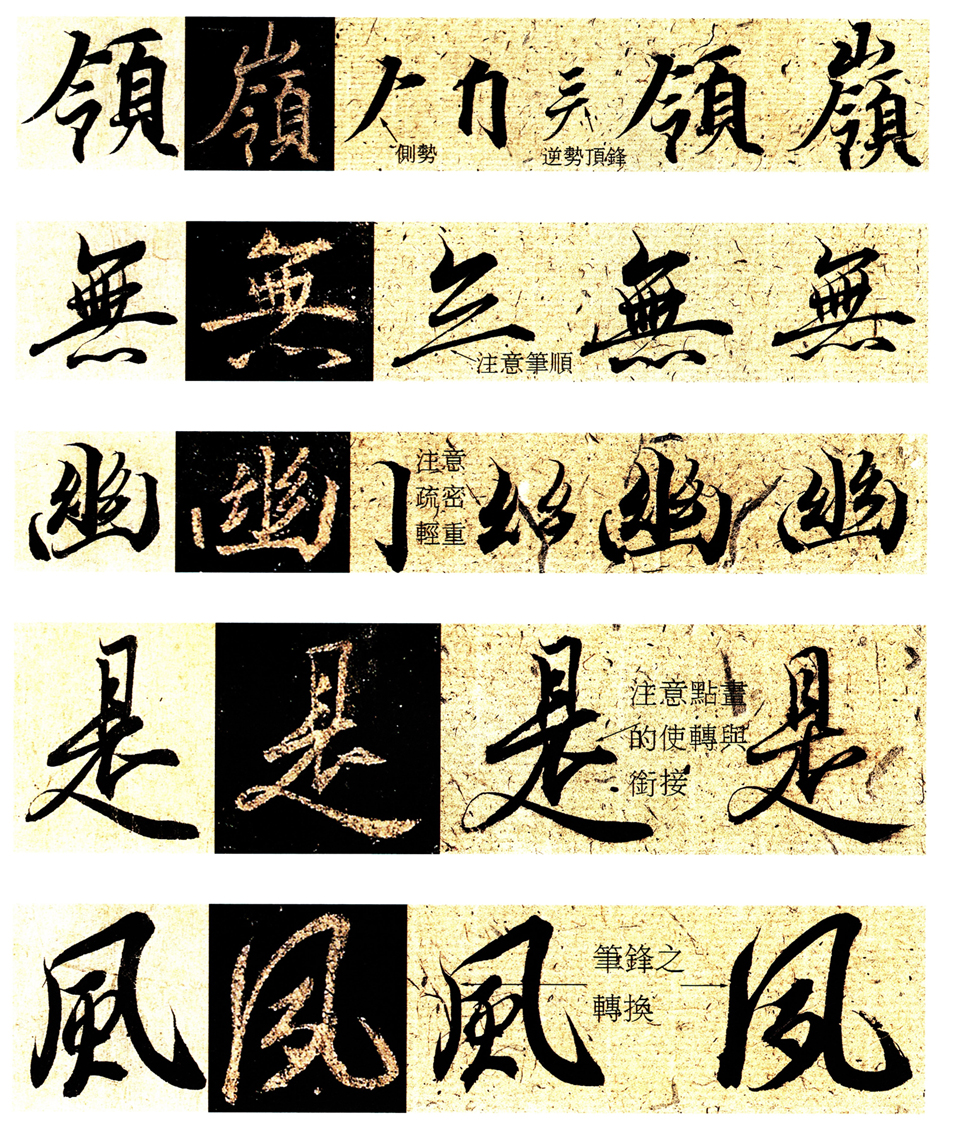 領 嶺 領 嶺
側勢
逆勢頂鋒
無 無 無 無
注意筆順
幽 幽 幽 幽
注意
疏密
輕重
是 是 是 是
注意點畫
的使轉與
銜接
風 風 風 風
筆鋒之
轉換